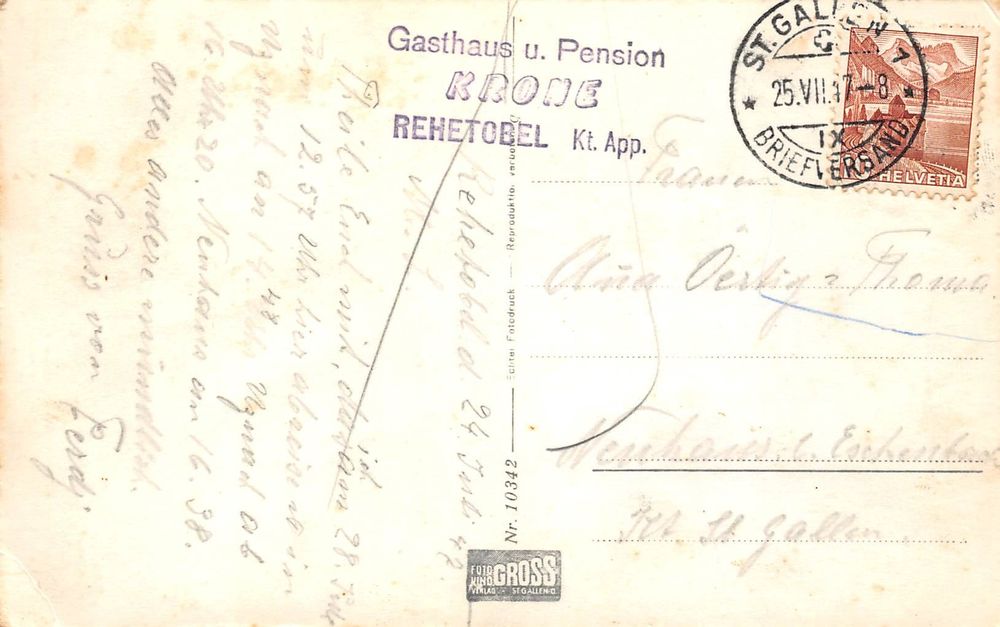 Gasthaus u. Pension
KRONE
REHETOBEL Kt. App.
ST. GALLEN 1
25.VII.47-8
IX
BRIEFVERSAND
HELVETIA
Rehetobel d. 24. Juli 47
Teile Euch mit, dass ich am 28 Juli
um 12.57 Uhr hier abreise
Uznach an 14.48 Uznach ab
16 Uhr 20. Neuhaus an 16.38.
alles andere mündlich.
Gruss von Ferd.
Frauen
Oertig-Thoma
Neuhaus b. Eschenbach
Kt. St. Gallen
Nr. 10342 — Echter Fotodruck — Reproduktion verboten
FOTO
KINO GROSS
VERLAG - ST. GALLEN-O.